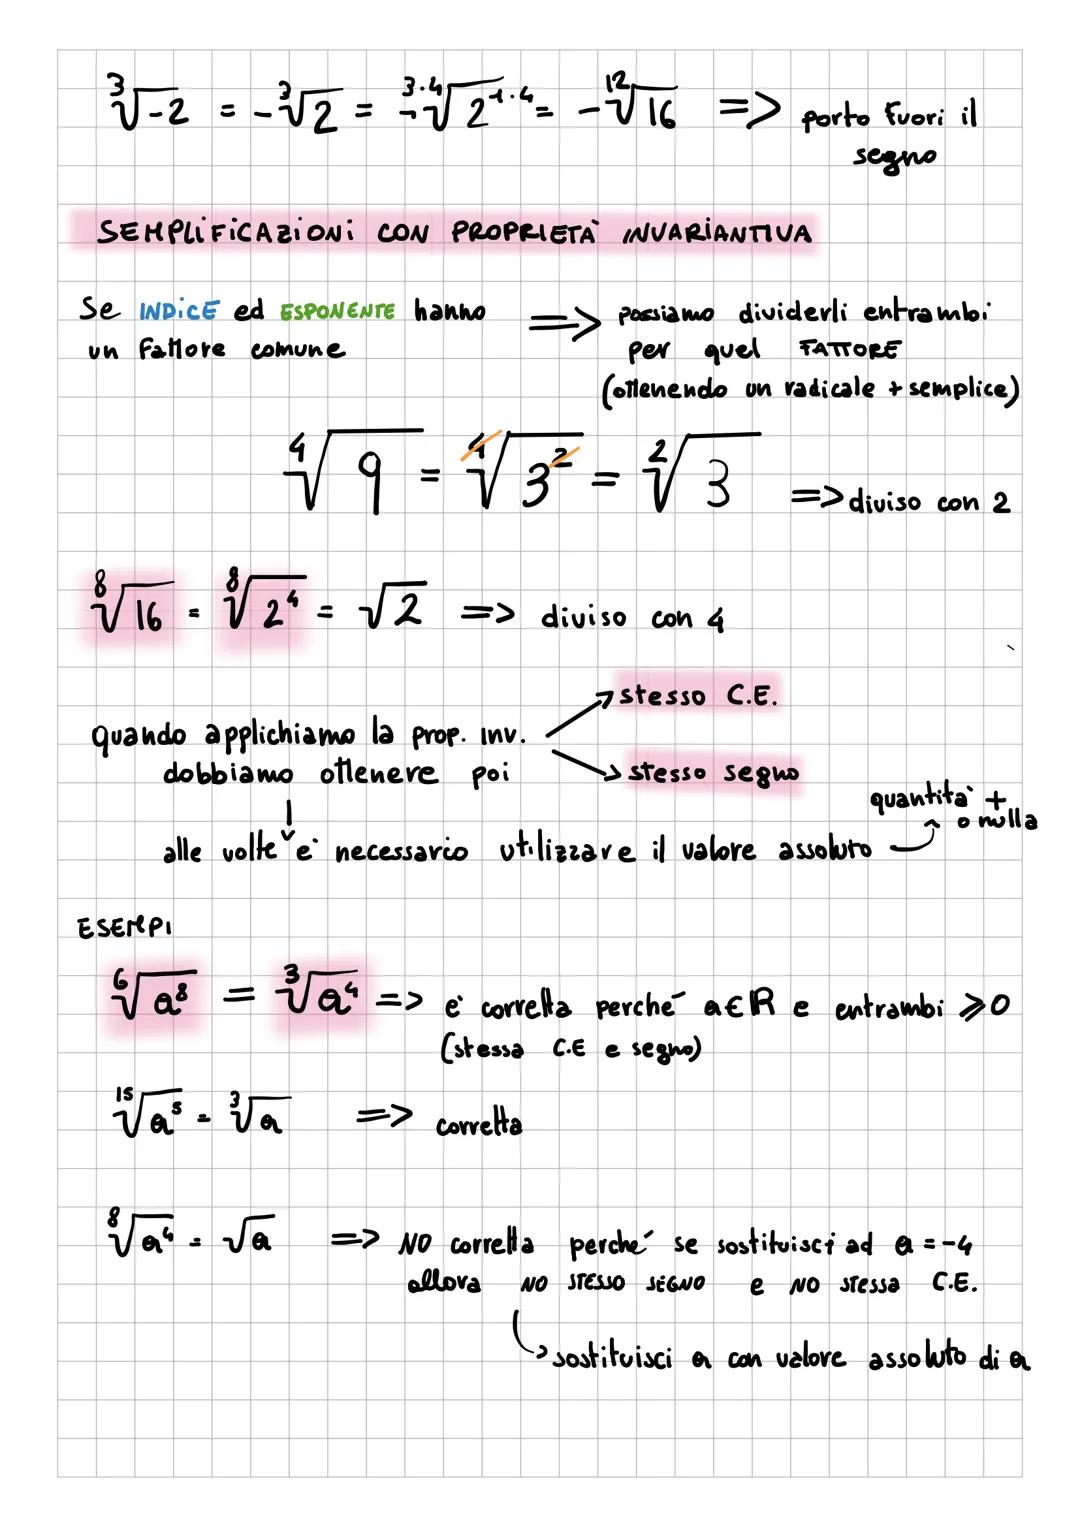 ∛-2 = -∛2 = -³·⁴√2¹·⁴ = -¹²√16 => porto fuori il
segno
SEMPLIFICAZIONI CON PROPRIETÀ INVARIANTIVA
Se INDICE ed ESPONENTE hanno => possiamo dividerli entrambi
un fattore comune per quel FATTORE
(ottenendo un radicale + semplice)
⁴√9 = ⁴√3² = ²√3 => diviso con 2
⁸√16 = ⁸√2⁴ = √2 => diviso con 4
stesso C.E.
quando applichiamo la prop. inv.
dobbiamo ottenere poi
stesso segno
quantità +
o nulla
alle volte è necessario utilizzare il valore assoluto
ESEMPI
⁶√a⁸ = ³√a⁴ => è corretta perché a∈R e entrambi ⩾0
(stessa C.E e segno)
¹⁵√a⁵ = ³√a => corretta
⁸√a⁴ = √a => NO corretta perché se sostituisci ad a = -4
allora NO STESSO SEGNO e NO stessa C.E.
sostituisci a con valore assoluto di a